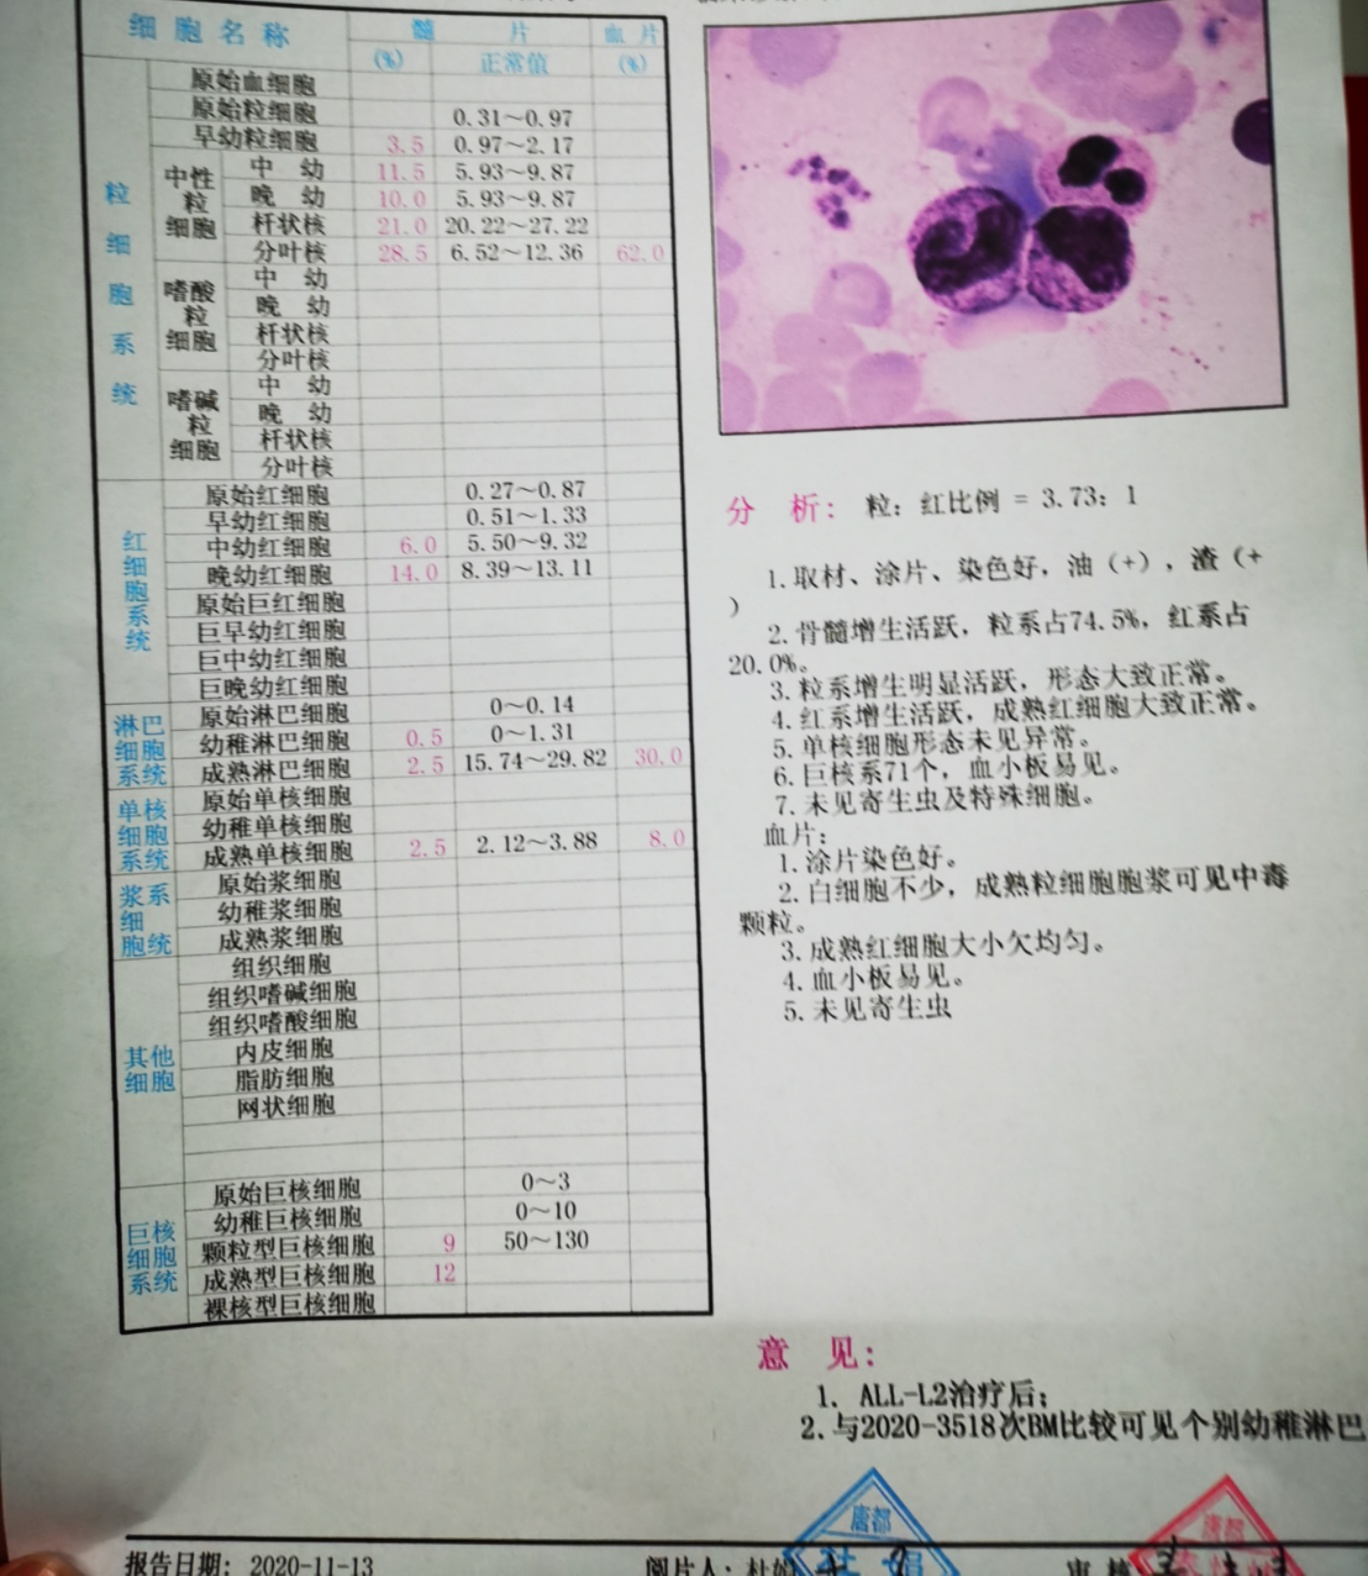 细胞名称 髓 片 血片
(%) 正常值 (%)
粒细胞系统
原始血细胞
原始粒细胞 0.31～0.97
早幼粒细胞 3.5 0.97～2.17
中性粒细胞
中幼 11.5 5.93～9.87
晚幼 10.0 5.93～9.87
杆状核 21.0 20.22～27.22
分叶核 28.5 6.52～12.36 62.0
嗜酸粒细胞
中幼
晚幼
杆状核
分叶核
嗜碱粒细胞
中幼
晚幼
杆状核
分叶核
红细胞系统
原始红细胞 0.27～0.87
早幼红细胞 0.51～1.33
中幼红细胞 6.0 5.50～9.32
晚幼红细胞 14.0 8.39～13.11
原始巨红细胞
巨早幼红细胞
巨中幼红细胞
巨晚幼红细胞
淋巴细胞系统
原始淋巴细胞 0～0.14
幼稚淋巴细胞 0.5 0～1.31
成熟淋巴细胞 2.5 15.74～29.82 30.0
单核细胞系统
原始单核细胞
幼稚单核细胞
成熟单核细胞 2.5 2.12～3.88 8.0
浆系细胞统
原始浆细胞
幼稚浆细胞
成熟浆细胞
其他细胞
组织细胞
组织嗜碱细胞
组织嗜酸细胞
内皮细胞
脂肪细胞
网状细胞
巨核细胞系统
原始巨核细胞 0～3
幼稚巨核细胞 0～10
颗粒型巨核细胞 9 50～130
成熟型巨核细胞 12
裸核型巨核细胞
分 析：粒：红比例 = 3.73：1
1.取材、涂片、染色好，油（+），渣（+
）
2.骨髓增生活跃，粒系占74.5%，红系占
20.0%。
3.粒系增生明显活跃，形态大致正常。
4.红系增生活跃，成熟红细胞大致正常。
5.单核细胞形态未见异常。
6.巨核系71个，血小板易见。
7.未见寄生虫及特殊细胞。
血片：
1.涂片染色好。
2.白细胞不少，成熟粒细胞胞浆可见中毒
颗粒。
3.成熟红细胞大小欠均匀。
4.血小板易见。
5.未见寄生虫
意 见：
1. ALL-L2治疗后；
2.与2020-3518次BM比较可见个别幼稚淋巴
唐都
唐都
报告日期：2020-11-13 阅片人：杜娟 审核